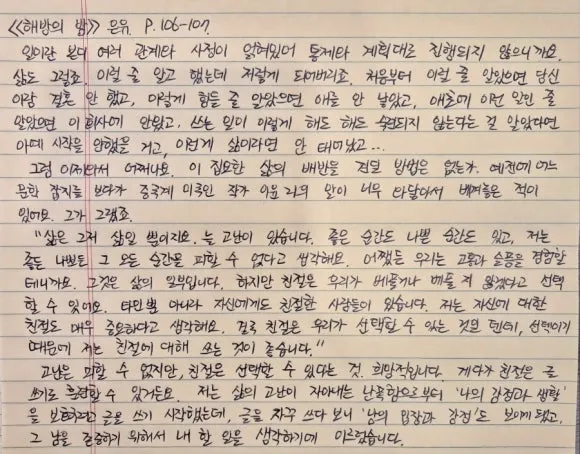 《해방의 밤》 은유 P.106-107.
일이란 본디 여러 관계나 사정이 얽혀있어 통제나 계획대로 진행되지 않으니까요.
삶도 그렇죠. 이럴 줄 알고 했는데 저렇게 되어버리죠. 처음부터 이럴 줄 알았으면 당신
이랑 결혼 안 했고, 이렇게 힘들 줄 알았으면 애를 안 낳았고, 애초에 이런 일인 줄
알았으면 이 회사에 안왔고, 쓰는 일이 이렇게 해도 해도 숙련되지 않는다는 걸 알았다면
아예 시작을 안했을 거고, 이런게 삶이라면 안 태어났고…
그럼 이제와서 어쩌나요. 이 집요한 삶의 배반을 견딜 방법은 없는가. 예전에 어느
문학 잡지를 보다가 중국계 미국인 작가 이윤 리의 말이 너무 와닿아서 베껴놓은 적이
있어요. 그가 그랬죠.
"삶은 그저 삶일 뿐이지요. 늘 고난이 있습니다. 좋은 순간도 나쁜 순간도 있고, 저는
좋든 나쁘든 그 모든 순간을 피할 수 없다고 생각해요. 어쨌든 우리는 고통과 슬픔을 경험할
테니까요. 그것은 삶의 일부입니다. 하지만 친절은 우리가 베풀거나 베풀 지 않겠다고 선택
할 수 있어요. 타인 뿐 아니라 자신에게도 친절한 사람들이 있습니다. 저는 자신에 대한
친절도 매우 중요하다고 생각해요. 결국 친절은 우리가 선택할 수 있는 것일 텐데, 선택이기
때문에 저는 친절에 대해 쓰는 것이 좋습니다."
고난은 피할 수 없지만, 친절은 선택할 수 있다는 것. 희망적입니다. 게다가 친절은 글
쓰기로 수련할 수 있거든요. 저는 삶의 고난이 자아내는 난폭함으로부터 '나의 감정과 생활'
을 보호하려고 글을 쓰기 시작했는데, 글을 자꾸 쓰다 보니 '남의 입장과 감정'도 보이게 됐고,
그 남을 존중하기 위해서 내 할 일을 생각하기에 이르렀습니다.